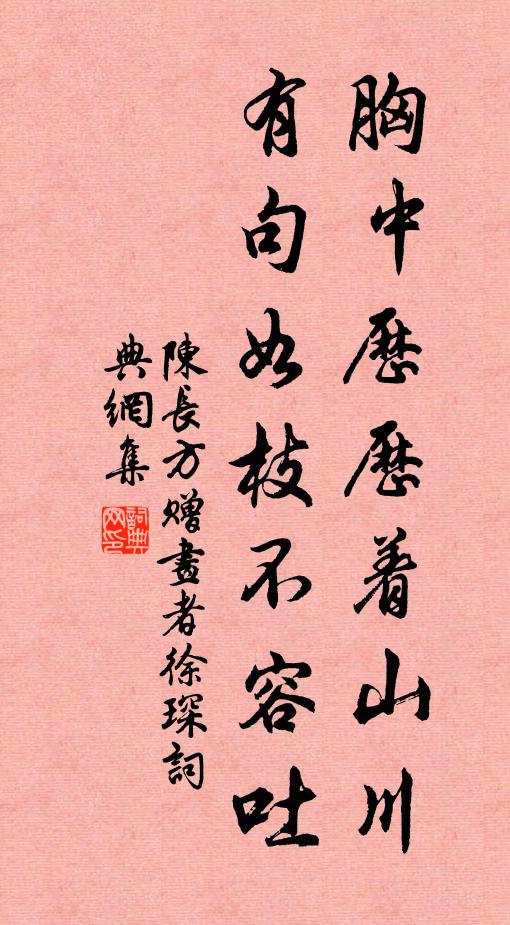 胸中歷歷着山川
有句如枝不容吐
陳長方贈畫者徐琛詞
典網集
詞典
网印